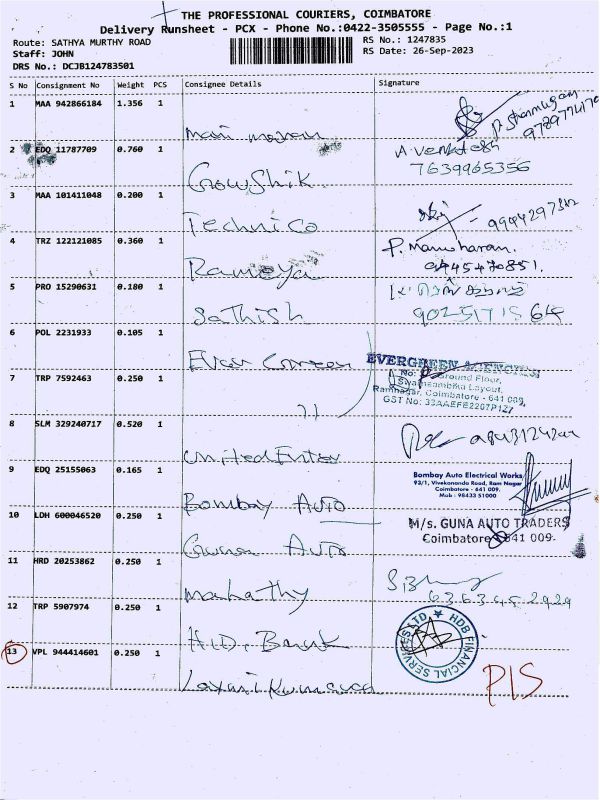 THE PROFESSIONAL COURIERS, COIMBATORE
Delivery Runsheet - PCX - Phone No.:0422-3505555 - Page No.:1
Route: SATHYA MURTHY ROAD
RS No.: 1247835
Staff: JOHN
RS Date: 26-Sep-2023
DRS No.: DCJB124783501
S No Consignment No Weight PCS Consignee Details Signature
1 MAA 942866184 1.356 1
P. Shanmugam
2 EDQ 11787709 0.760 1 GrowShik
A. Venkatesh
7639965356
3 MAA 101411048 0.200 1 Technico
4 TRZ 122121085 0.360 1 Rameya
P. Manoharan.
9445470851.
5 PRO 15290631 0.180 1 Sathish
9025171564
6 POL 2231933 0.105 1
EVERGREEN AGENCIES
Ground Floor,
Swathambika Layout,
Ramnagar, Coimbatore - 641 009.
GST No: 33AAEFE2267P1Z1
7 TRP 7592463 0.250 1 11
8 SLM 329240717 0.520 1 United Enter
9 EDQ 25155063 0.165 1 Bombay Auto
Bombay Auto Electrical Works
93/1, Vivekananda Road, Ram Nagar
Coimbatore - 641 009.
Mob : 98433 51000
10 LDH 600046520 0.250 1 Guna Auto
M/s. GUNA AUTO TRADERS
Coimbatore 641 009.
11 HRD 20253862 0.250 1 Mahathy
6363452929
12 TRP 5907974 0.250 1 H.D. Bank
HDB FINANCIAL SERVICES LTD
13 VPL 944414601 0.250 1
PIS